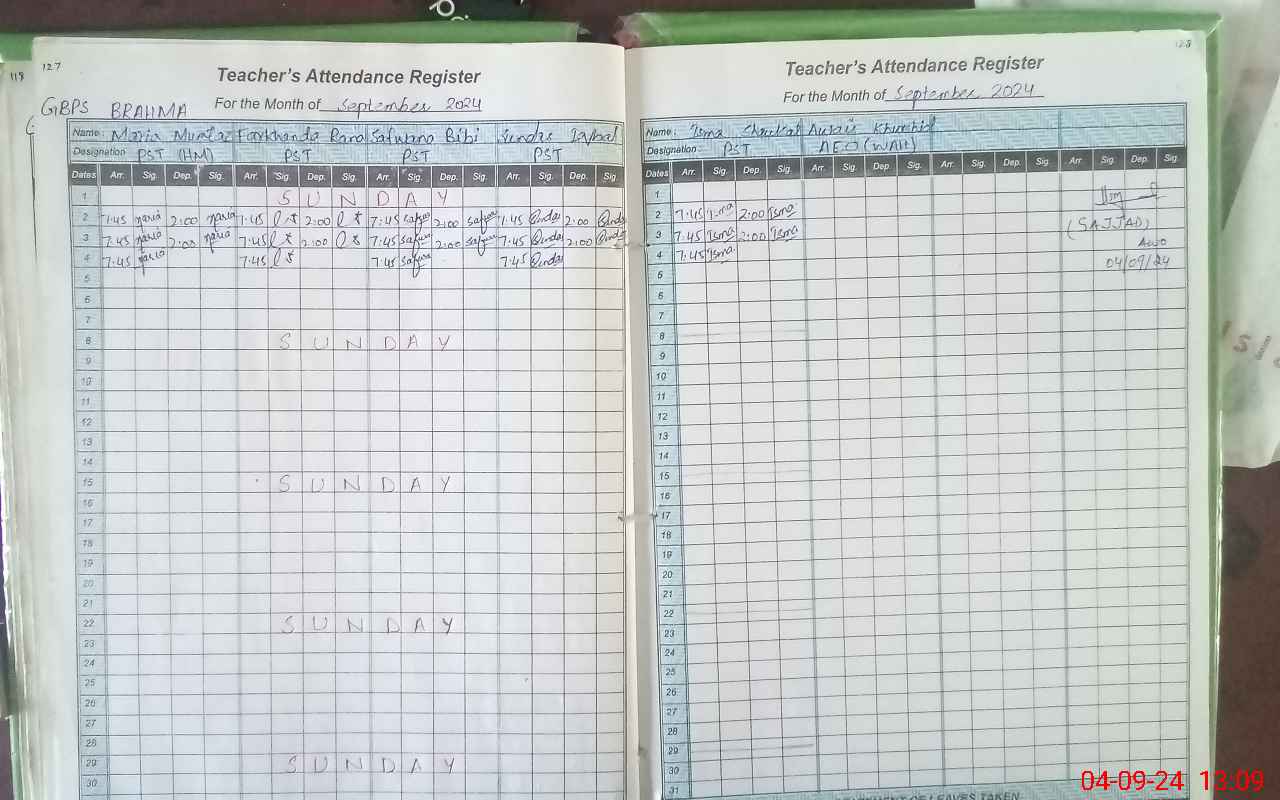 119
127
Teacher's Attendance Register
GBPS BRAHMA For the Month of September 2024
Name: Maria Mumtaz Farkhanda Rana Safurana Bibi Sundas Iqbal
Designation PST (HM) PST PST PST
Dates Arr. Sig. Dep. Sig. Arr. Sig. Dep. Sig. Arr. Sig. Dep. Sig. Arr. Sig. Dep. Sig.
1 SUNDAY
2 7:45 Maria 2:00 Maria 7:45 2:00 7:45 Safura 2:00 Safura 7:45 Sundas 2:00 Sundas
3 7:45 Maria 2:00 Maria 7:45 2:00 7:45 Safura 2:00 Safura 7:45 Sundas 2:00 Sundas
4 7:45 Maria 7:45 7:45 Safura 7:45 Sundas
5
6
7
8 SUNDAY
9
10
11
12
13
14
15 SUNDAY
16
17
18
19
20
21
22 SUNDAY
23
24
25
26
27
28
29 SUNDAY
30
128
Teacher's Attendance Register
For the Month of September 2024
Name: Isma Shaukat Awais Khurshid
Designation PST AEO (WAH)
Dates Arr. Sig. Dep. Sig. Arr. Sig. Dep. Sig. Arr. Sig. Dep. Sig. Arr. Sig. Dep. Sig.
1
2 7:45 Isma 2:00 Isma
3 7:45 Isma 2:00 Isma (SAJJAD)
4 7:45 Isma
04/09/24
5
6
7
8
9
10
11
12
13
14
15
16
17
18
19
20
21
22
23
24
25
26
27
28
29
30
31
OF LEAVES TAKEN
04-09-24 13:09